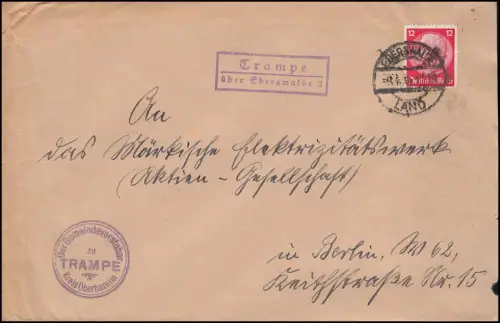 Trampe
über Eberswalde 2
12 12
Deutsches Reich
EBERSWALDE
LAND
An
das Märkische Elektrizitätswerk
(Aktien-Gesellschaft)
Der Gemeindevorsteher
zu
TRAMPE
Kreis Oberbarnim
in Berlin, W 62,
Keithstraße Nr. 15